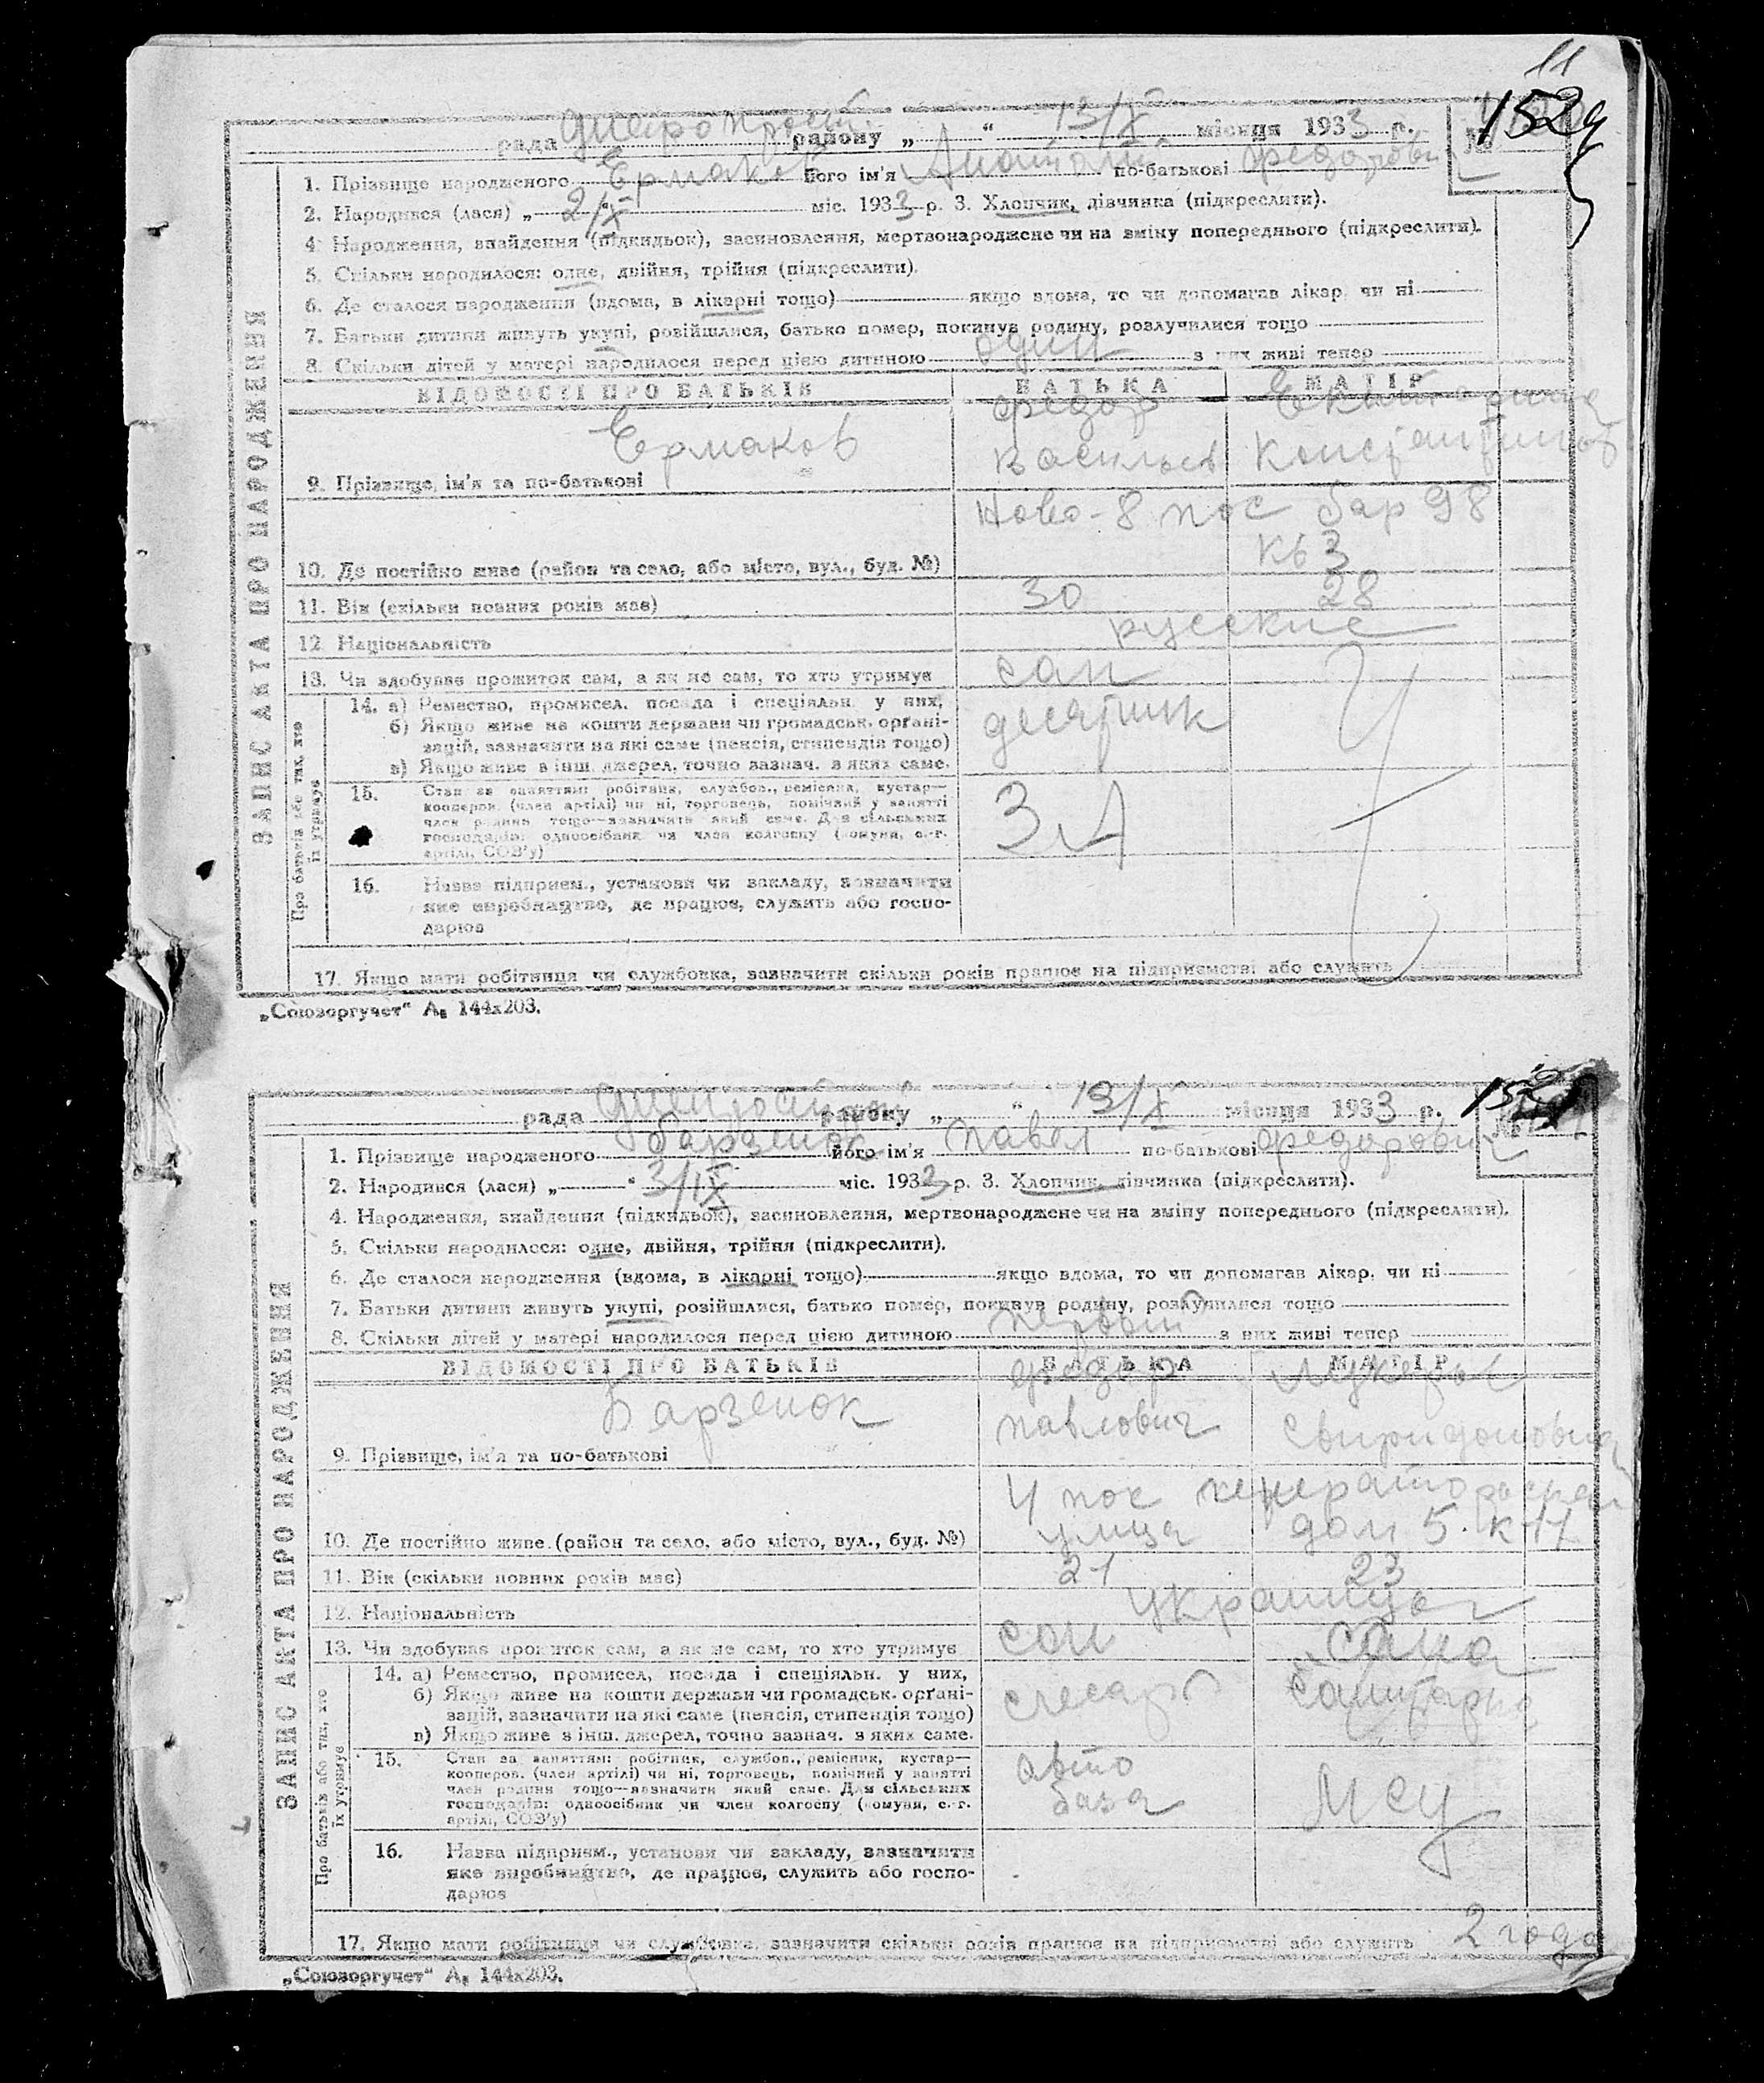 11
1529
рада району „ “ 13/X місяця 1933 р. №
1. Прізвище народженого Ермаков його ім'я Анатолий по-батькові Федорови
2. Народився (лася) „ 2/X міс. 1933 р. 3. Хлопчик, дівчинка (підкреслити).
4. Народження, знайдення (підкидьок), засиновлення, мертвонароджене чи на зміну попереднього (підкреслити).
5. Скільки народилося: одне, двійня, трійня (підкреслити).
6. Де сталося народження (вдома, в лікарні тощо) якщо вдома, то чи допомагав лікар, чи ні
7. Батьки дитини живуть укупі, розійшлися, батько помер, покинув родину, розлучилися тощо
8. Скільки дітей у матері народилося перед цією дитиною один з них живі тепер
ВІДОМОСТІ ПРО БАТЬКІВ БАТЬКА МАТІР
Ермаков Федор Екатерина
Васильев Константинов
9. Прізвище, ім'я та по-батькові
Ново-8 пос бар 98
кв 3
10. Де постійно живе (район та село, або місто, вул., буд. №)
11. Вік (скільки повних років має) 30 28
12. Національність русские
13. Чи здобуває прожиток сам, а як не сам, то хто утримує сам
14. а) Ремество, промисел, посада і спеціяльн. у них, десятник
б) Якщо живе на кошти держави чи громадськ. орґані-
зацій, зазначити на які саме (пенсія, стипендія тощо)
в) Якщо живе з інш. джерел, точно зазнач. з яких саме.
15. Стан за заняттям: робітник, службов., ремісник, кустар—
кооперов. (член артілі) чи ні, торговець, помічний у занятті
член родини тощо—зазначити який саме. Для сільських
господарів: одноосібник чи член колгоспу (комуни, с.-г.
артілі, СОЗ'у)
16. Назва підприєм., установи чи закладу, зазначити
яке виробництво, де працює, служить або госпо-
дарює
17. Якщо мати робітниця чи службовка, зазначити скільки років працює на підприємстві або служить
ЗАПИС АКТА ПРО НАРОДЖЕННЯ
Про батьків або тих, хто
їх утримує
„Союзоргучет“ А₅ 144х203.
рада району „ “ 13/X місяця 1933 р.
1. Прізвище народженого Барзенок його ім'я Павел по-батькові Федорович
2. Народився (лася) „ “ 3/IX міс. 1933 р. 3. Хлопчик, дівчинка (підкреслити).
4. Народження, знайдення (підкидьок), засиновлення, мертвонароджене чи на зміну попереднього (підкреслити).
5. Скільки народилося: одне, двійня, трійня (підкреслити).
6. Де сталося народження (вдома, в лікарні тощо) якщо вдома, то чи допомагав лікар, чи ні
7. Батьки дитини живуть укупі, розійшлися, батько помер, покинув родину, розлучилися тощо
8. Скільки дітей у матері народилося перед цією дитиною первый з них живі тепер
ВІДОМОСТІ ПРО БАТЬКІВ БАТЬКА МАТІР
Барзенок Федор Лукерья
Павлович Свиридоновна
9. Прізвище, ім'я та по-батькові
4 пос
улица дом 5. к 11
10. Де постійно живе (район та село, або місто, вул., буд. №)
11. Вік (скільки повних років має) 21 23
12. Національність украинцы
13. Чи здобуває прожиток сам, а як не сам, то хто утримує сам сама
14. а) Ремество, промисел, посада і спеціяльн. у них, слесарь санитарка
б) Якщо живе на кошти держави чи громадськ. орґані-
зацій, зазначити на які саме (пенсія, стипендія тощо)
в) Якщо живе з інш. джерел, точно зазнач. з яких саме.
15. Стан за заняттям: робітник, службов., ремісник, кустар— авто
кооперов. (член артілі) чи ні, торговець, помічний у занятті база
член родини тощо—зазначити який саме. Для сільських МСЧ
господарів: одноосібник чи член колгоспу (комуни, с.-г.
артілі, СОЗ'у)
16. Назва підприєм., установи чи закладу, зазначити
яке виробництво, де працює, служить або госпо-
дарює
17. Якщо мати робітниця чи службовка, зазначити скільки років працює на підприємстві або служить 2 года
ЗАПИС АКТА ПРО НАРОДЖЕННЯ
Про батьків або тих, хто
їх утримує
„Союзоргучет“ А₅ 144х203.